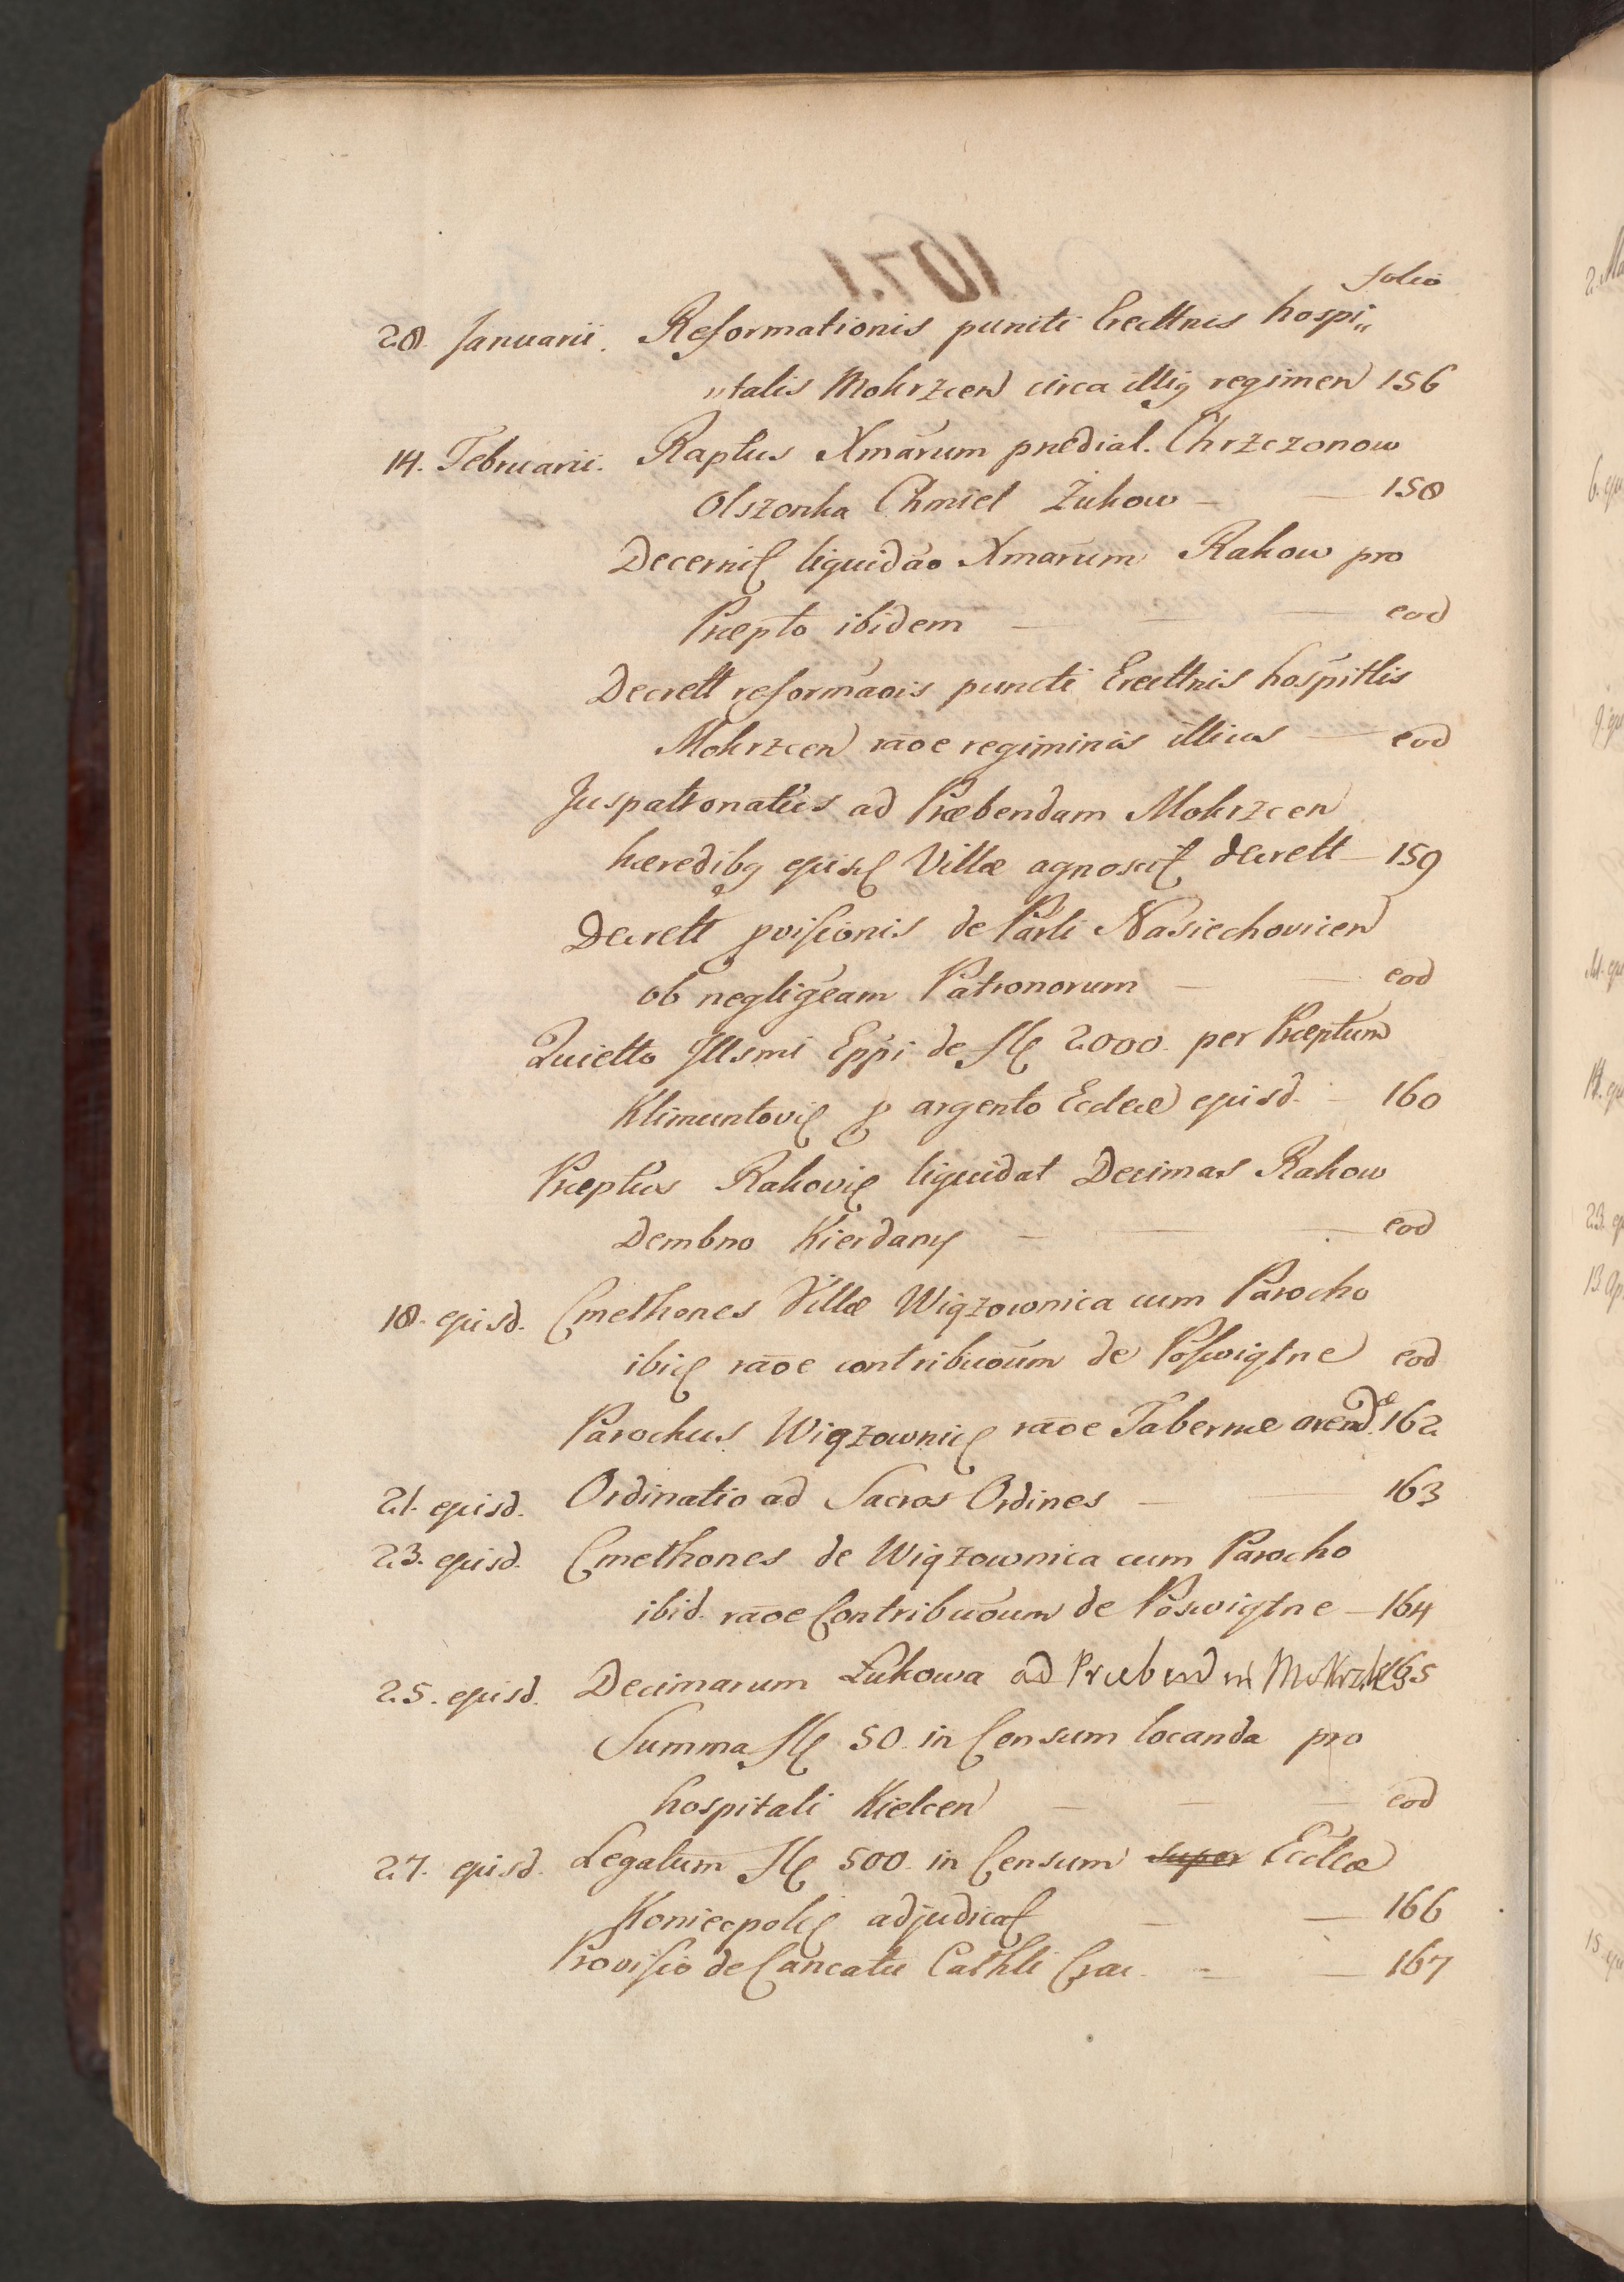 folio
28. Januarii. Reformationis puncti Erecttnis hospi„
„talis Mokrzcen circa illig regimen 156
14. Februarii. Raptus Xmarum prædial. Chrzczonow
Olszonka Chmiel Żukow — — 158
Decernit liquidão Xmarum Rakow pro
Præpto ibidem — — — eod
Decrett reformãois puncti Erecttnis hospittlis
Mokrzcen rãoe regiminis illius — eod
Juspatronatus ad Præbendam Mokrzcen
hæredibg episd Villæ agnoscit decrett — 159
Decrett pvisionis de Parli Nasiechovicen
ob negligeam Patronorum — — eod
Quietto Illsmi Eppi de fl 2000. per Præptum
Klimuntovi p argento Ecclæ episd. — 160
Præptus Rakovi liquidat Decimas Rakow
Dembno Kierdany — — eod
18. episd. Cmethones Villæ Wiązownica cum Parocho
ibi rãoe contribuõum de Poswiętne eod
Parochus Wiązownic rãoe Tabernæ arendæ 162
21. episd. Ordinatio ad Sacros Ordines — — 163
23. episd. Cmethones de Wiązownica cum Parocho
ibid. rãoe Contribuõum de Poswiętne — 164
25. episd. Decimarum Łukowa ad Præbend in Mokrzk 165
Summa fl 50. in Censum locanda pro
hospitali Kielcen — — — eod
27. episd. Legatum fl 500. in Censum super Ecclæ
Koniecpol adjudicat — — 166
Provisio de Cancatu Cathli Crac. — — 167